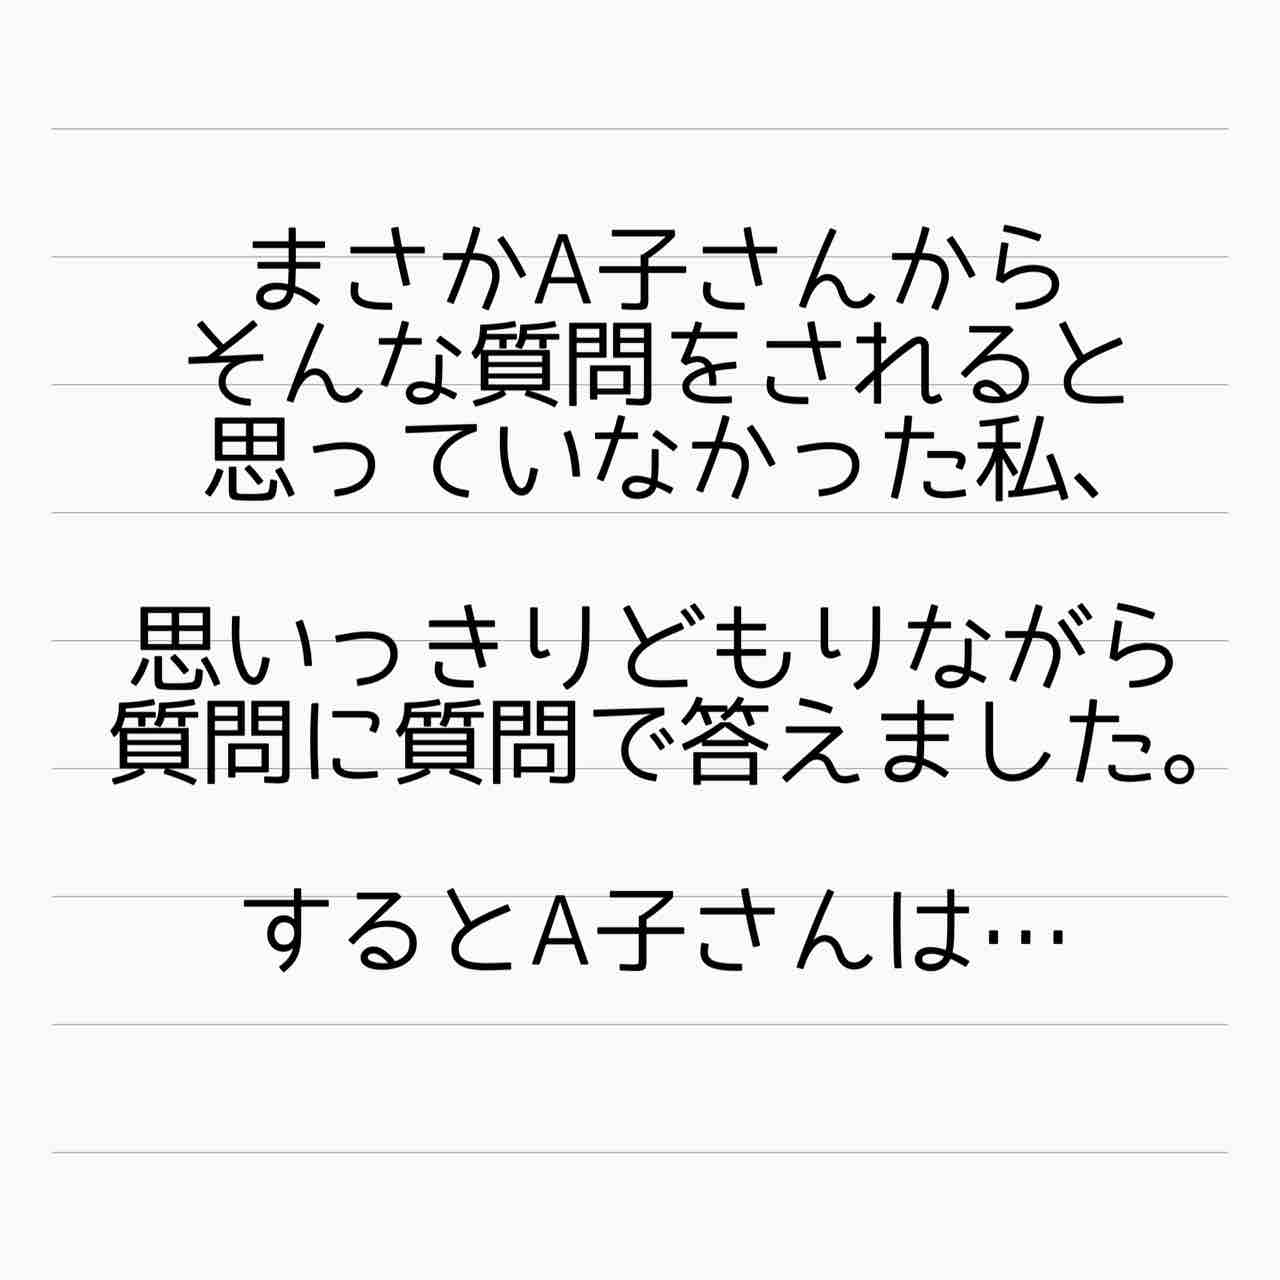 まさかA子さんから
そんな質問をされると
思っていなかった私、
思いっきりどもりながら
質問に質問で答えました。
するとA子さんは…